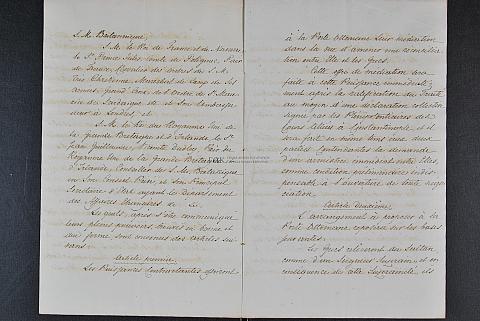 S. M. Britannique,
S. M. le Roi de France et de Navarre,
le Sr. Prince Jules, Comte de Polignac, Pair
de France, Chevalier des ordres de S. M.
Très Chrétienne, Maréchal de Camp de Ses
Armées, Grand' Croix de l'Ordre de St. Maurice
de Sardaigne, et Son Ambassadeur
à Londres, et
S. M. le Roi du Royaume Uni de
la Grande Bretagne et d'Irlande, le Sr.
Jean Guillaume, Vicomte Dudley, Pair du
Royaume Uni de la Grande Bretagne et
d'Irlande, Conseiller de S. M. Britannique
en Son Conseil Privé, et Son Principal
Secrétaire d'Etat ayant le Département
des Affaires Etrangères
Les quels, après s'être communiqué
leurs pleins pouvoirs, trouvés en bonne et
due forme, sont convenus des articles suivans:
Article premier.
Les Puissances Contractantes offriront
à la Porte Ottomane leur médiation
dans la vue d'amener une réconciliation
entre Elle et les Grecs.
Cette offre de médiation sera
faite à cette Puissance immédiatement
après la ratification du Traité
au moyen d'une déclaration collective
signée par les Plénipotentiaires des
Cours Alliées à Constantinople, et il
sera fait en même tems aux deux
parties Contendantes la demande
d'un armistice immédiat entre Elles,
comme condition préliminaire indispensable
à l'ouverture de toute négociation.
Article Deuxième.
L'arrangement à proposer à la
Porte Ottomane reposera sur les bases
suivantes:
Les Grecs relèveront du Sultan,
comme d'un Seigneur Suzerain; et en
conséquence de cette Suzeraineté, ils